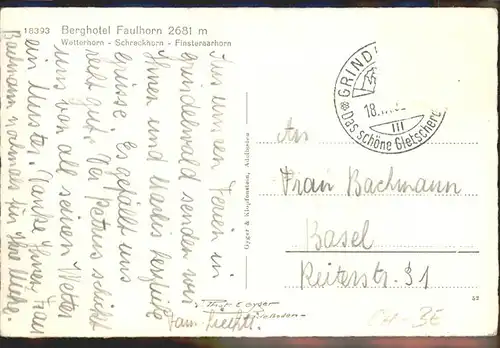 18393 Berghotel Faulhorn 2681 m
Wetterhorn - Schreckhorn - Finsteraarhorn
Aus unsern Ferien in
Grindelwald senden wir
Ihnen und herzliche
Grüsse. Es gefällt uns
recht gut. Der Petrus schickt
uns von all seinen Wetter
ein Muster. Danke Ihnen Frau
Bachmann nochmals für Ihre Mühe.
Fam.
Gyger & Klopfenstein, Adelboden
GRIND
18.
III
Das schöne Gletscherd
An
Frau Bachmann
Basel
Reiterstr. 31
Phot E Gyger
Adelboden
CH-BE